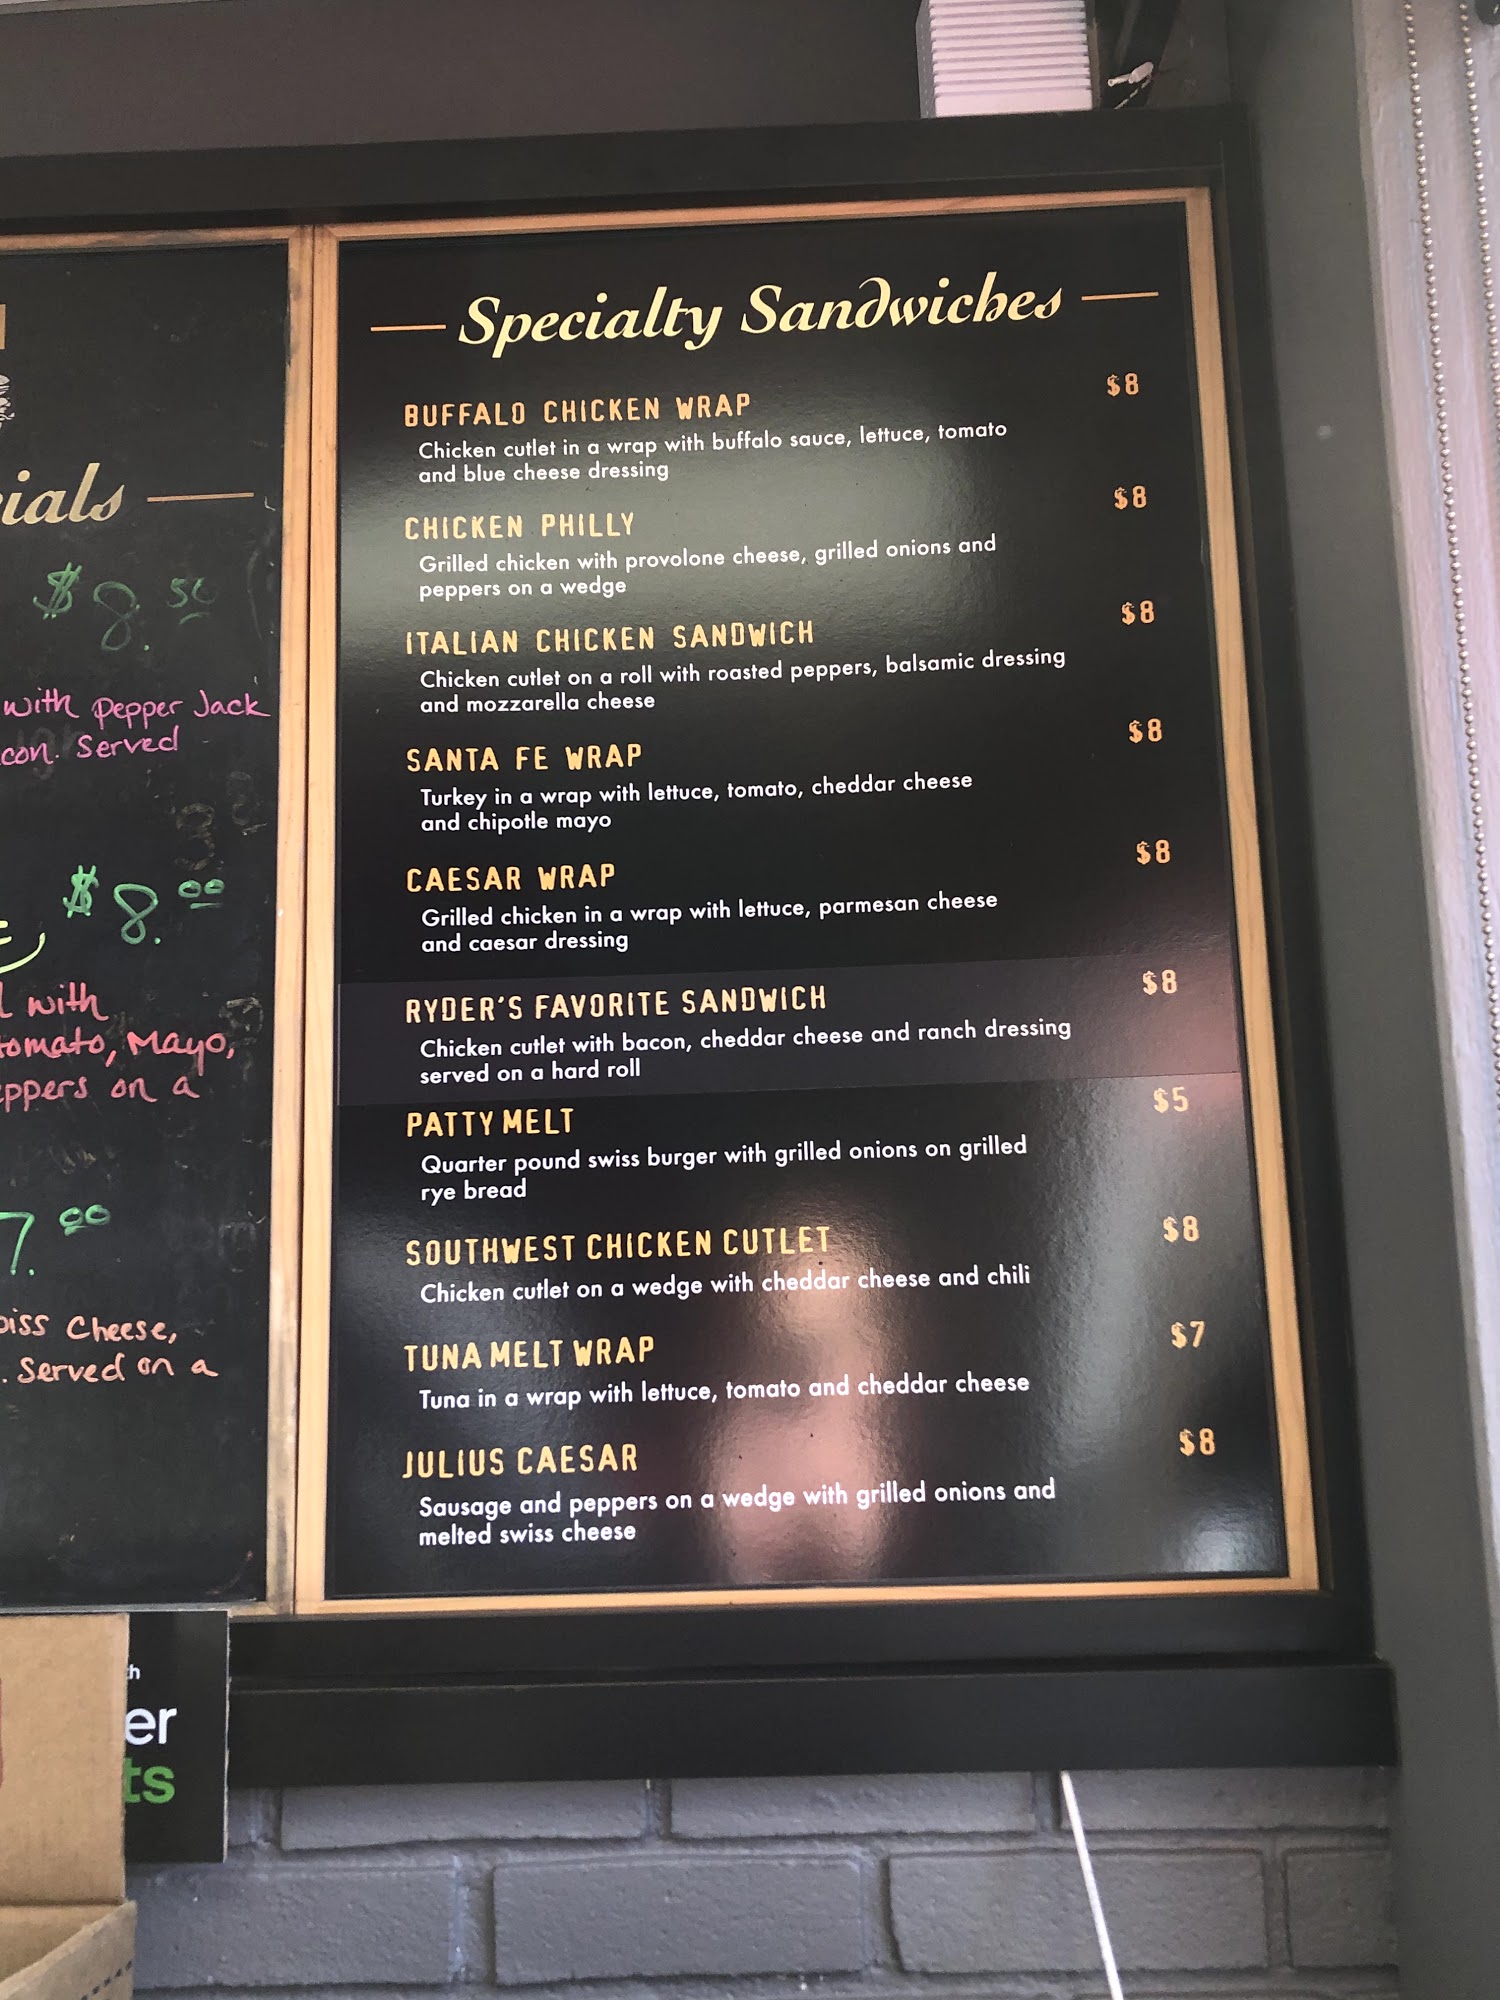 ials
$8.50
with Pepper Jack
con. Served
$8.00
with
tomato, Mayo,
eppers on a
7.00
iss Cheese,
. Served on a
h
er
ts
Specialty Sandwiches
BUFFALO CHICKEN WRAP $8
Chicken cutlet in a wrap with buffalo sauce, lettuce, tomato
and blue cheese dressing
CHICKEN PHILLY $8
Grilled chicken with provolone cheese, grilled onions and
peppers on a wedge
ITALIAN CHICKEN SANDWICH $8
Chicken cutlet on a roll with roasted peppers, balsamic dressing
and mozzarella cheese
SANTA FE WRAP $8
Turkey in a wrap with lettuce, tomato, cheddar cheese
and chipotle mayo
CAESAR WRAP $8
Grilled chicken in a wrap with lettuce, parmesan cheese
and caesar dressing
RYDER'S FAVORITE SANDWICH $8
Chicken cutlet with bacon, cheddar cheese and ranch dressing
served on a hard roll
PATTY MELT $5
Quarter pound swiss burger with grilled onions on grilled
rye bread
SOUTHWEST CHICKEN CUTLET $8
Chicken cutlet on a wedge with cheddar cheese and chili
TUNA MELT WRAP $7
Tuna in a wrap with lettuce, tomato and cheddar cheese
JULIUS CAESAR $8
Sausage and peppers on a wedge with grilled onions and
melted swiss cheese